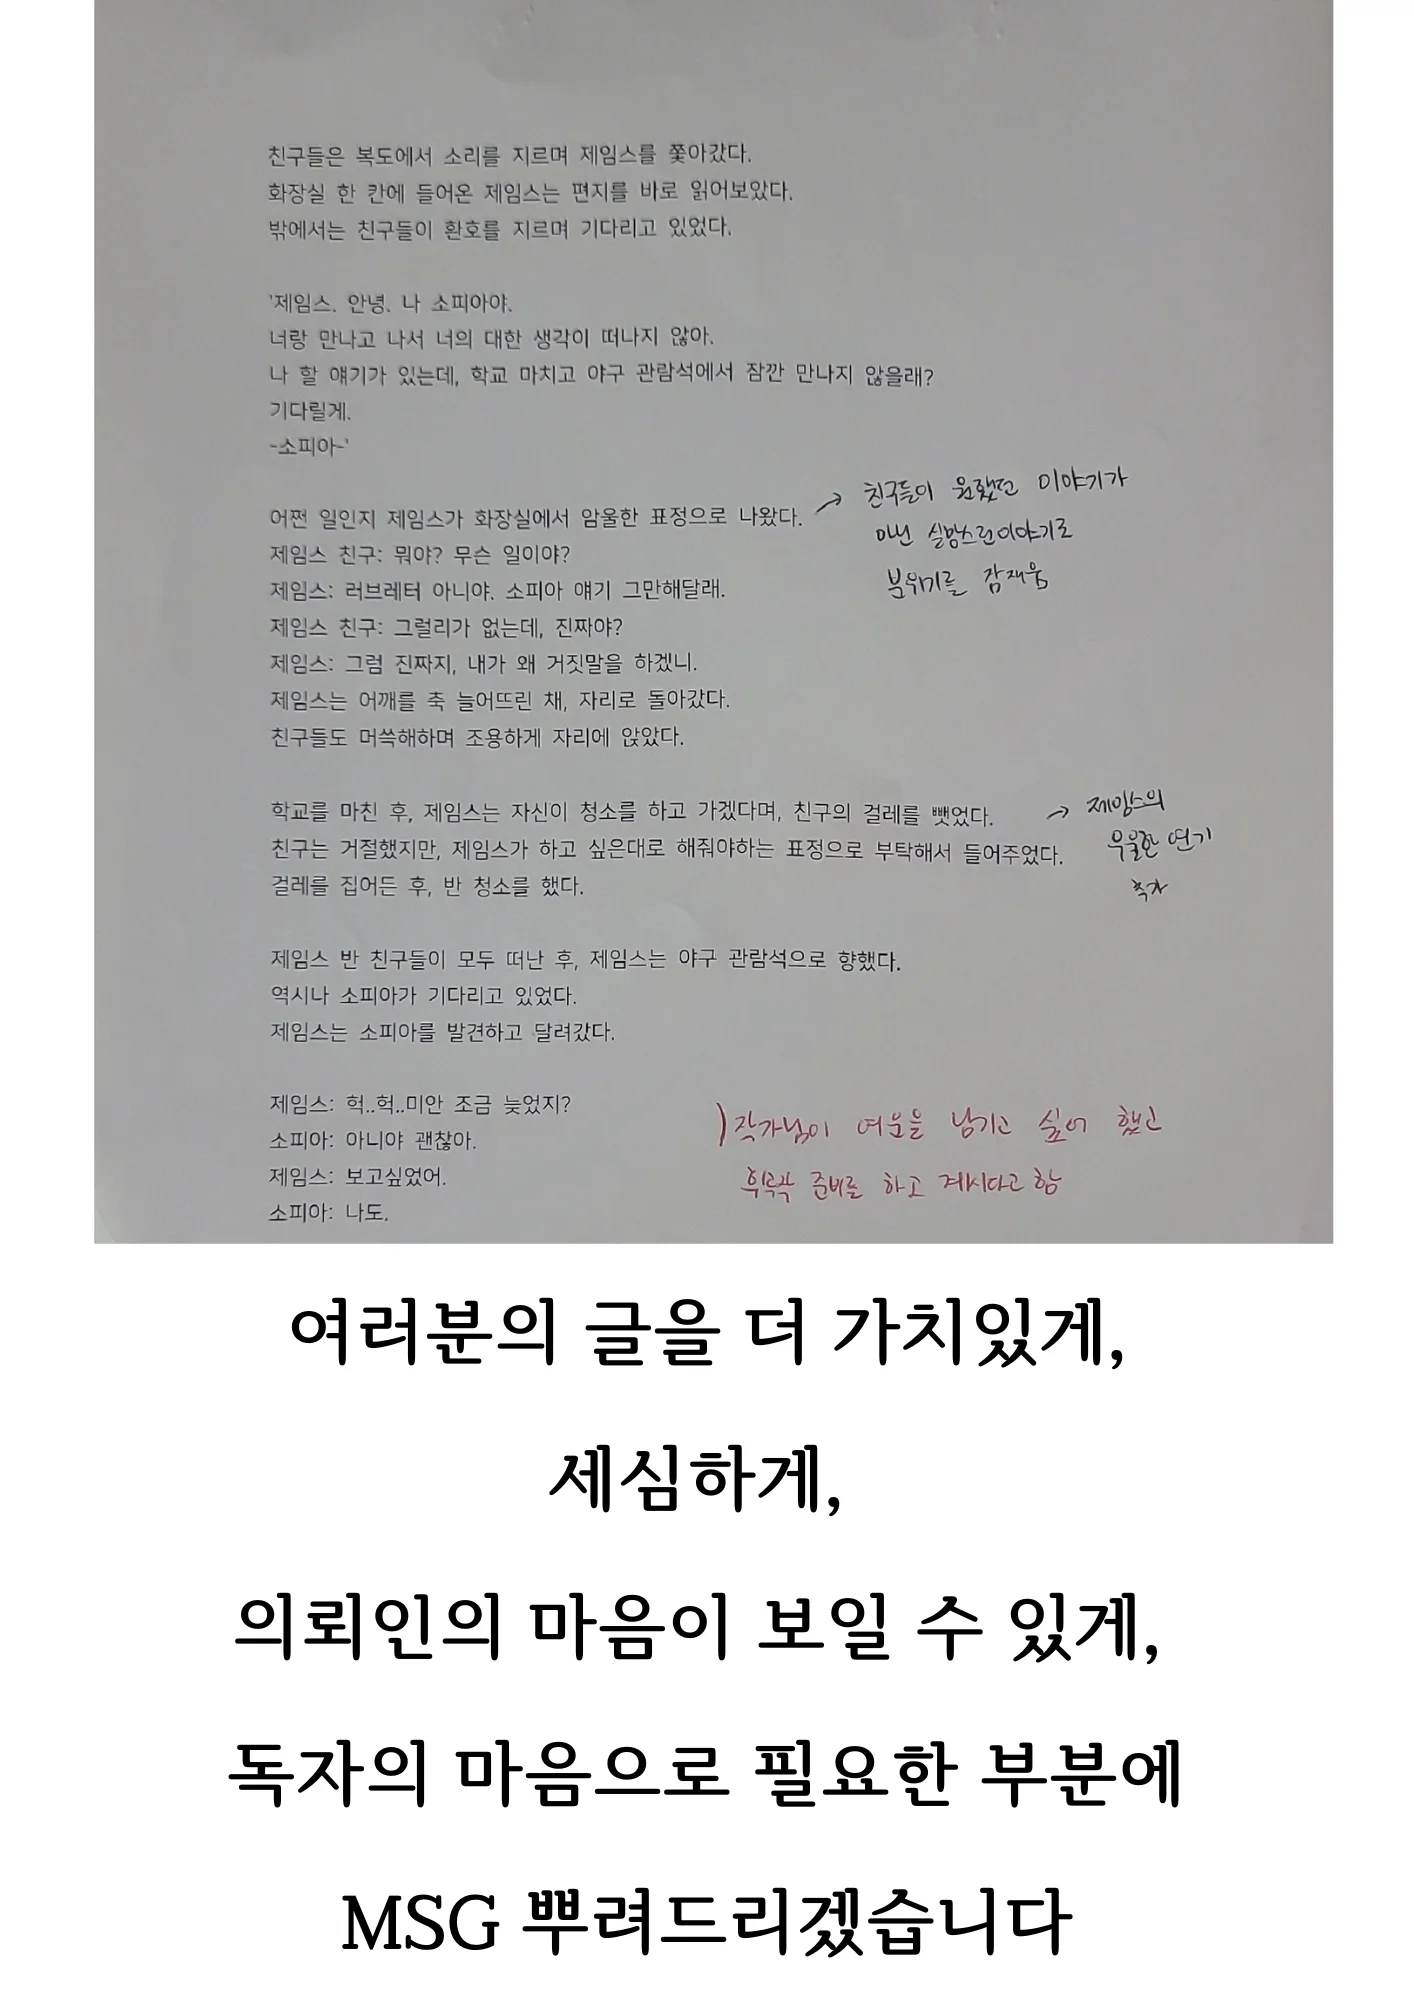 친구들은 복도에서 소리를 지르며 제임스를 쫓아갔다.
화장실 한 칸에 들어온 제임스는 편지를 바로 읽어보았다.
밖에서는 친구들이 환호를 지르며 기다리고 있었다.
'제임스. 안녕. 나 소피아야.
너랑 만나고 나서 너의 대한 생각이 떠나지 않아.
나 할 얘기가 있는데, 학교 마치고 야구 관람석에서 잠깐 만나지 않을래?
기다릴게.
-소피아-'
어쩐 일인지 제임스가 화장실에서 암울한 표정으로 나왔다.
→ 친구들이 원했던 이야기가
아닌 실망스런이야기로
분위기를 잠재움
제임스 친구: 뭐야? 무슨 일이야?
제임스: 러브레터 아니야. 소피아 얘기 그만해달래.
제임스 친구: 그럴리가 없는데, 진짜야?
제임스: 그럼 진짜지, 내가 왜 거짓말을 하겠니.
제임스는 어깨를 축 늘어뜨린 채, 자리로 돌아갔다.
친구들도 머쓱해하며 조용하게 자리에 앉았다.
학교를 마친 후, 제임스는 자신이 청소를 하고 가겠다며, 친구의 걸레를 뺏었다.
→ 제임스의
우울한 연기
추가
친구는 거절했지만, 제임스가 하고 싶은대로 해줘야하는 표정으로 부탁해서 들어주었다.
걸레를 집어든 후, 반 청소를 했다.
제임스 반 친구들이 모두 떠난 후, 제임스는 야구 관람석으로 향했다.
역시나 소피아가 기다리고 있었다.
제임스는 소피아를 발견하고 달려갔다.
제임스: 헉..헉..미안 조금 늦었지?
소피아: 아니야 괜찮아.
제임스: 보고싶었어.
소피아: 나도.
) 작가님이 여운을 남기고 싶어 했고
후속작 준비를 하고 계시다고 함
여러분의 글을 더 가치있게,
세심하게,
의뢰인의 마음이 보일 수 있게,
독자의 마음으로 필요한 부분에
MSG 뿌려드리겠습니다